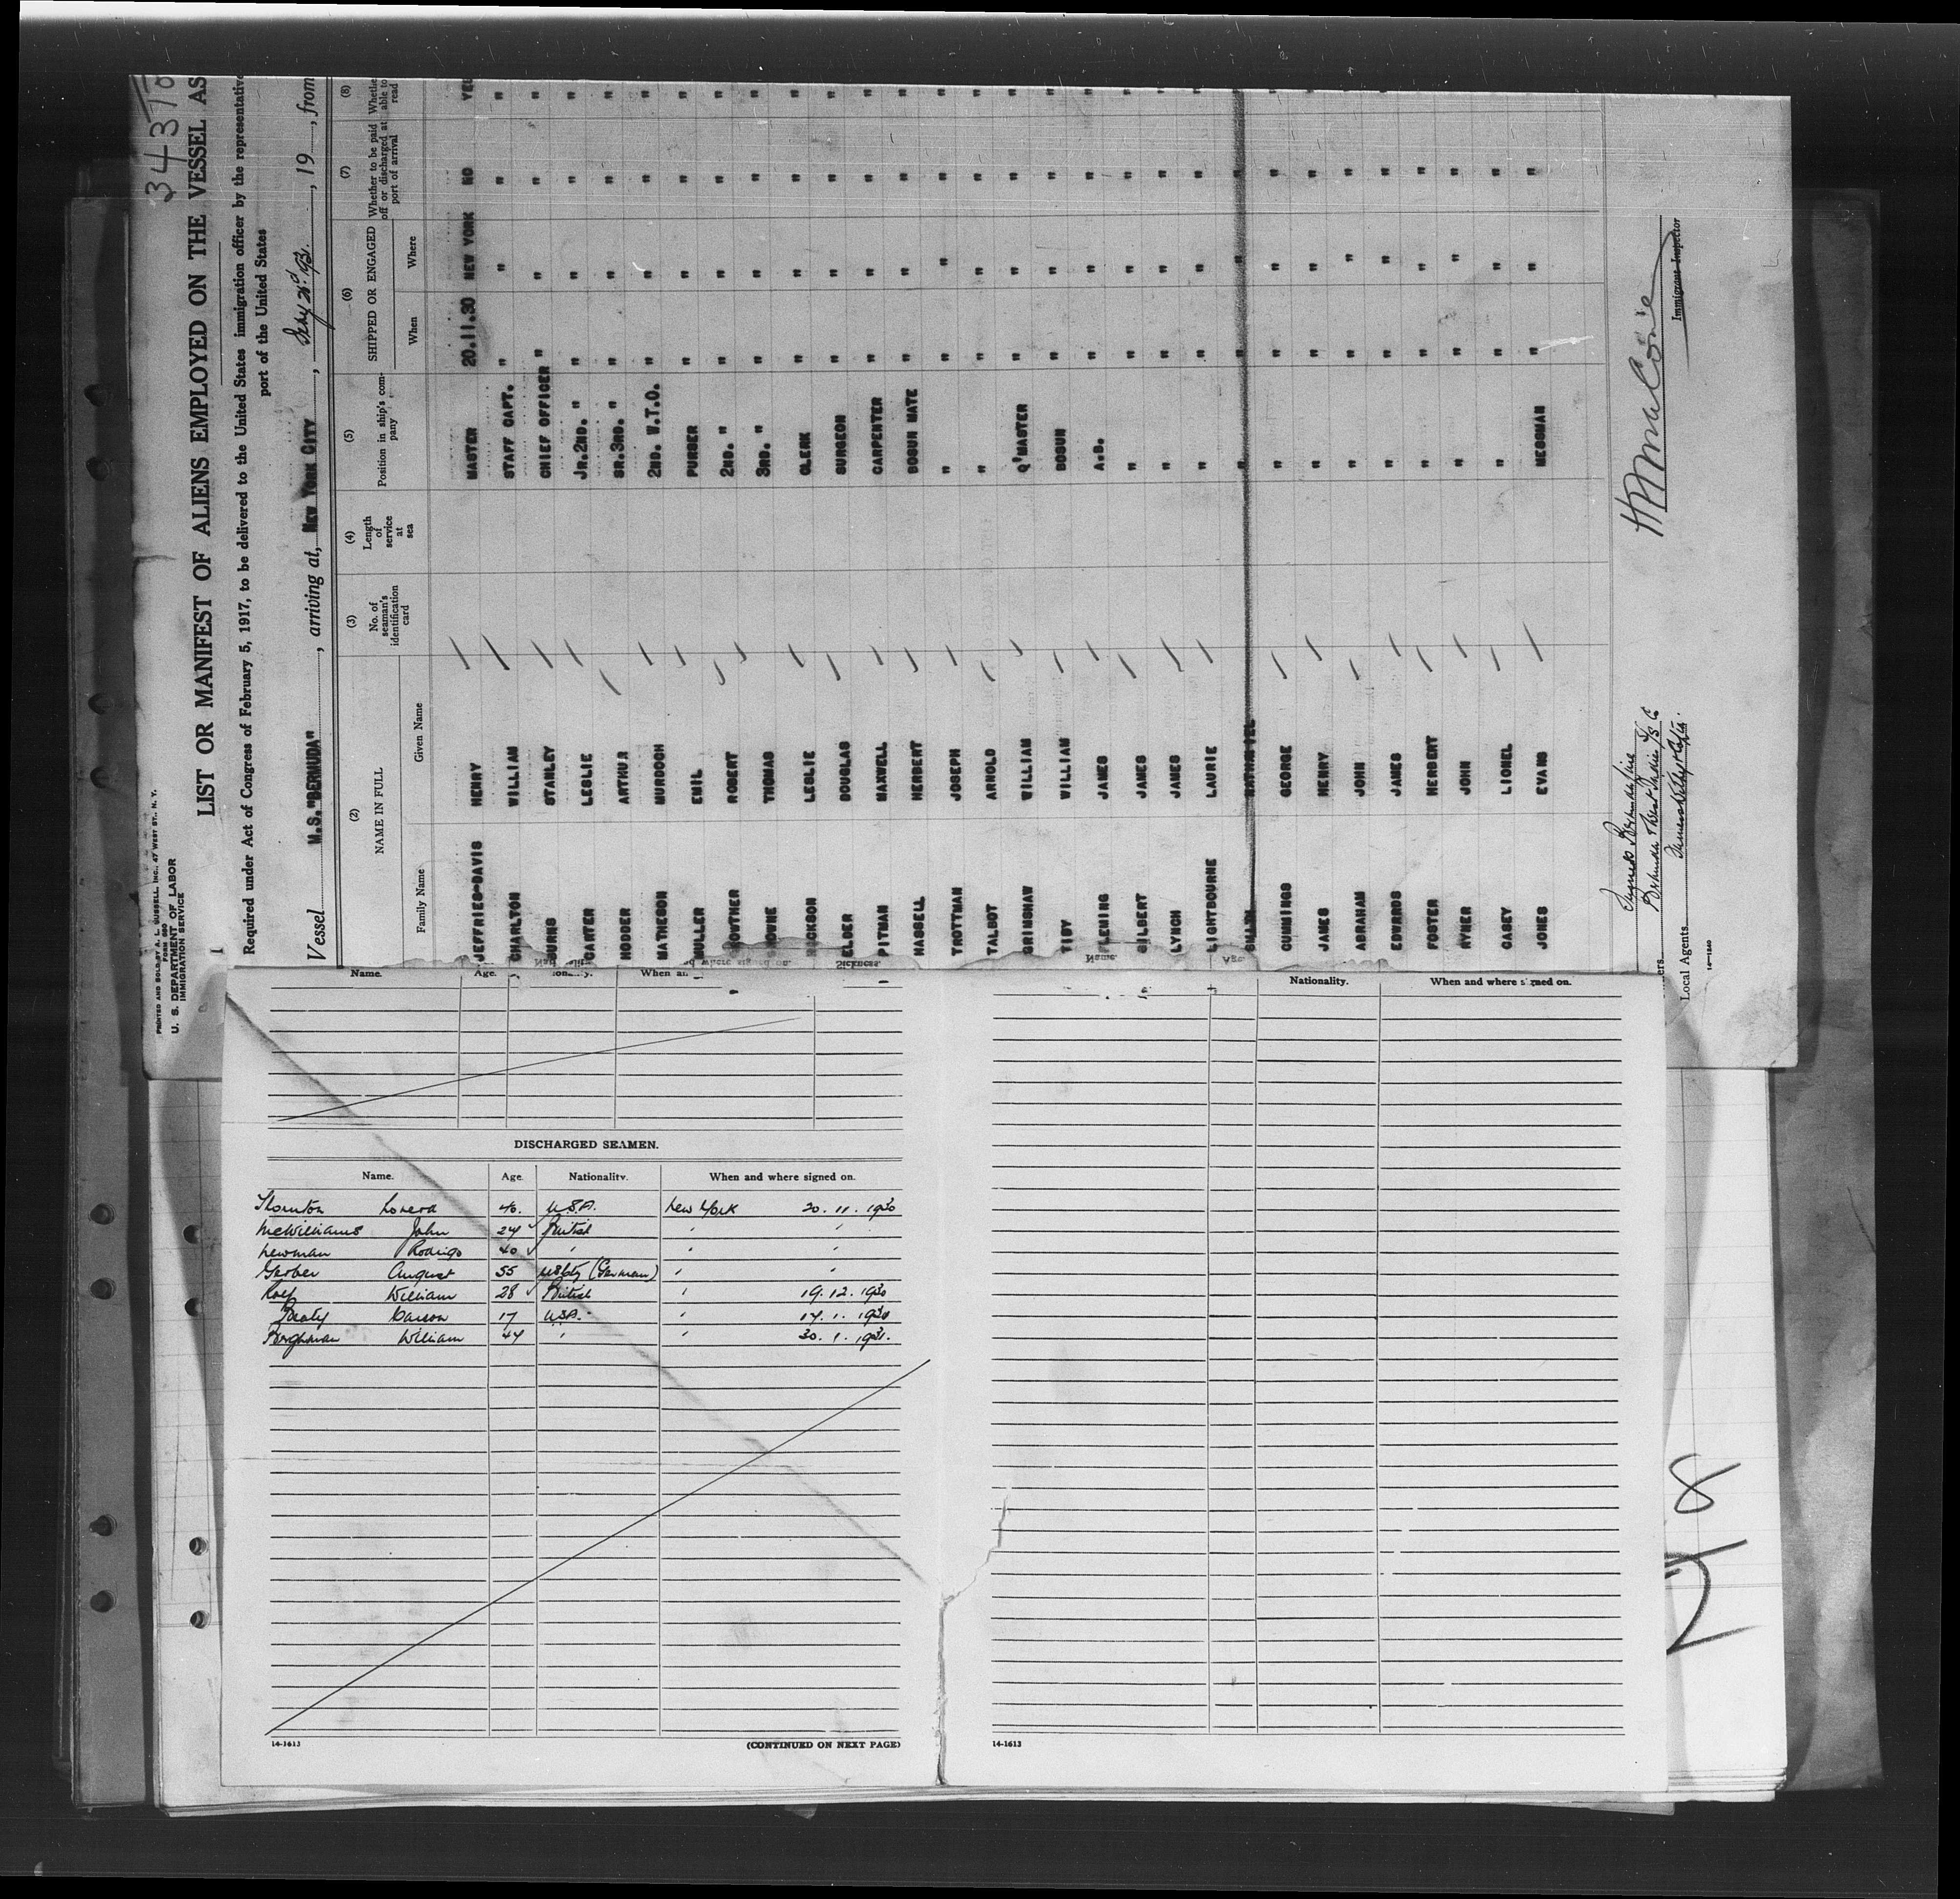 34310
PRINTED AND SOLD BY A. L. RUSSELL, INC., 47 WEST ST., N. Y.
FORM 680
U. S. DEPARTMENT OF LABOR
IMMIGRATION SERVICE
LIST OR MANIFEST OF ALIENS EMPLOYED ON THE VESSEL AS
Required under Act of Congress of February 5, 1917, to be delivered to the United States immigration officer by the representative
port of the United States
Vessel M.S. "BERMUDA", arriving at, NEW YORK CITY, 19, from
(2) (3) (4) (5) (6) (7) (8)
NAME IN FULL No. of seaman's identification card Length of service at sea Position in ship's company SHIPPED OR ENGAGED Whether to be paid off or discharged at port of arrival Whether able to read
Family Name Given Name When Where
JEFFRIES-DAVIS HENRY MASTER 20.11.30 NEW YORK NO YES
CHARLTON WILLIAM STAFF CAPT. " " " "
BURNS STANLEY CHIEF OFFICER " " " "
CARTER LESLIE JR.2ND. " " " " "
HODDER ARTHUR SR.3RD. " " " " "
MATHESON MURDOCH 2ND. W.T.O. " " " "
MULLER EMIL PURSER " " " "
ROWTHER ROBERT 2ND. " " " " "
THOMAS 3RD. " " " " "
LESLIE CLERK " " " "
ELDER DOUGLAS SURGEON " " " "
PITMAN MAXWELL CARPENTER " " " "
HASSELL HERBERT BOSUN MATE " " " "
TROTTMAN JOSEPH " " " " "
TALBOT ARNOLD " " " " "
GRIMSHAW WILLIAM Q'MASTER " " " "
TIBY WILLIAM BOSUN " " " "
FLEMING JAMES A.B. " " " "
GILBERT JAMES " " " " "
LYNCH JAMES " " " " "
LIGHTBOURNE LAURIE " " " " "
NATHANIEL " " " " "
CUMMINGS GEORGE " " " " "
JAMES HENRY " " " " "
ABRAHAM JOHN " " " " "
EDWARDS JAMES " " " " "
FOSTER HERBERT " " " " "
RYNER JOHN " " " " "
CASEY LIONEL " " " " "
JONES EVANS MESSMAN " " " "
Immigrant Inspector
Local Agents
14-1240
Name. Age. When an
Nationality. When and where signed on.
DISCHARGED SEAMEN.
Name. Age. Nationality. When and where signed on.
Thornton 46. U.S.A. New York 20. 11. 1930
McWilliams John 24 British " "
Newman Rodrigo 40 " " "
Gerber August 55 (German) " "
William 28 British " 19. 12. 1930
17 U.S.A. "
William 44 " " 30. 1. 1931.
14-1613 (CONTINUED ON NEXT PAGE)
14-1613